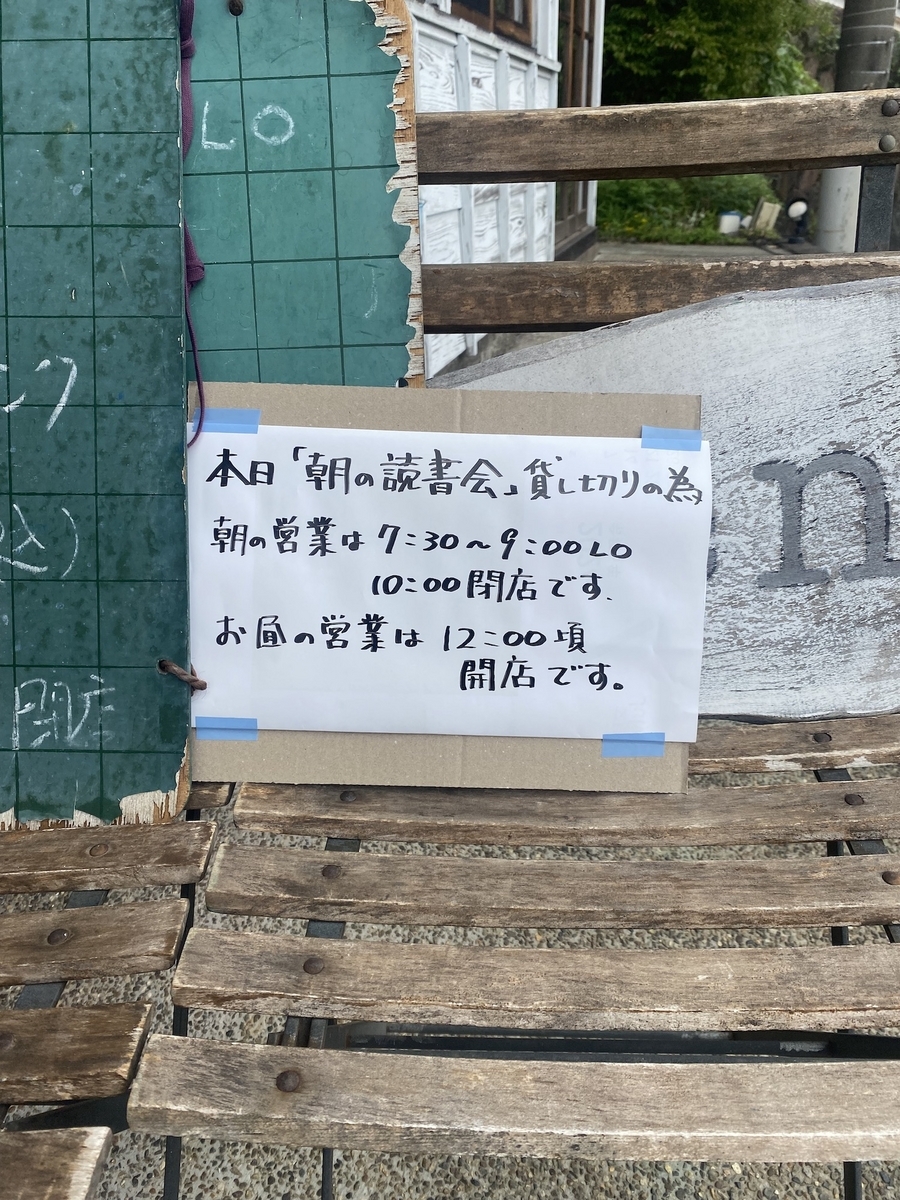 LO
込)
閉店
本日「朝の読書会」貸し切りの為
朝の営業は7:30~9:00LO
10:00閉店です.
お昼の営業は12:00頃
開店です。
n